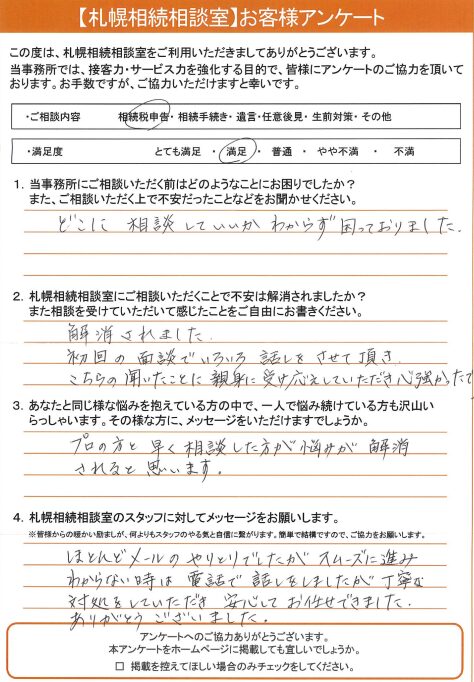 【札幌相続相談室】お客様アンケート
この度は、札幌相続相談室をご利用いただきましてありがとうございます。
当事務所では、接客力・サービス力を強化する目的で、皆様にアンケートのご協力を頂いて
おります。お手数ですが、ご協力いただけますと幸いです。
・ご相談内容 相続税申告・相続手続き・遺言・任意後見・生前対策・その他
・満足度 とても満足 ・ 満足 ・ 普通 ・ やや不満 ・ 不満
1．当事務所にご相談いただく前はどのようなことにお困りでしたか？
また、ご相談いただく上で不安だったことなどをお聞かせください。
どこに 相談していいか わからず 困っておりました.
2．札幌相続相談室にご相談いただくことで不安は解消されましたか？
また相談を受けていただいて感じたことをご自由にお書きください。
解消されました.
初回の面談でいろいろ 話しをさせて頂き.
こちらの聞いたことに親身に受け応えしていただき心強かったで
3．あなたと同じ様な悩みを抱えている方の中で、一人で悩み続けている方も沢山い
らっしゃいます。その様な方に、メッセージをいただけますでしょうか。
プロの方と早く相談した方が悩みが解消
されると思います.
4．札幌相続相談室のスタッフに対してメッセージをお願いします。
※皆様からの暖かい励ましが、何よりもスタッフのやる気と自信に繋がります。簡単で結構ですので、ご協力をお願いします。
ほとんどメールのやりとりでしたがスムーズに進み
わからない時は電話で話しをしましたが丁寧な
対処をしていただき安心してお任せできました.
ありがとうございました.
アンケートへのご協力ありがとうございます。
本アンケートをホームページに掲載しても宜しいでしょうか。
□ 掲載を控えてほしい場合のみチェックをしてください。